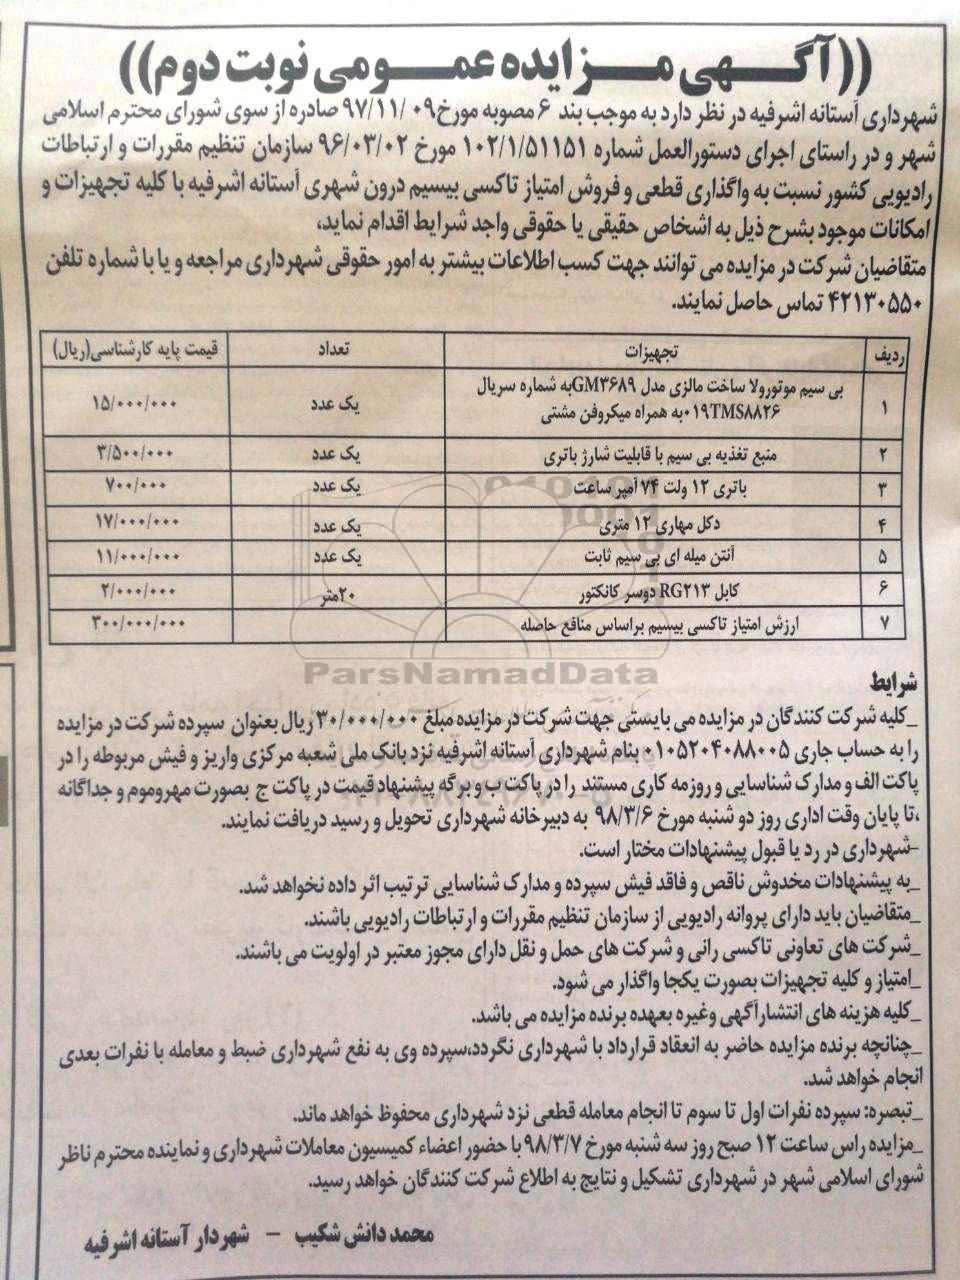 ((آگهی مزایده عمومی نوبت دوم))
شهرداری آستانه اشرفیه در نظر دارد به موجب بند ۶ مصوبه مورخ ۹۷/۱۱/۰۹ صادره از سوی شورای محترم اسلامی
شهر و در راستای اجرای دستورالعمل شماره ۱۰۲/۱/۵۱۱۵۱ مورخ ۹۶/۰۳/۰۲ سازمان تنظیم مقررات و ارتباطات
رادیویی کشور نسبت به واگذاری قطعی و فروش امتیاز تاکسی بیسیم درون شهری آستانه اشرفیه با کلیه تجهیزات و
امکانات موجود بشرح ذیل به اشخاص حقیقی یا حقوقی واجد شرایط اقدام نماید،
متقاضیان شرکت در مزایده می توانند جهت کسب اطلاعات بیشتر به امور حقوقی شهرداری مراجعه و یا با شماره تلفن
۴۲۱۳۰۵۵۰ تماس حاصل نمایند.
ردیف تجهیزات تعداد قیمت پایه کارشناسی(ریال)
۱ بی سیم موتورولا ساخت مالزی مدل GM۳۶۸۹به شماره سریال
۰۱۹TMS۸۸۲۶به همراه میکروفن مشتی یک عدد ۱۵/۰۰۰/۰۰۰
۲ منبع تغذیه بی سیم با قابلیت شارژ باتری یک عدد ۳/۵۰۰/۰۰۰
۳ باتری ۱۲ ولت ۷۴ آمپر ساعت یک عدد ۷۰۰/۰۰۰
۴ دکل مهاری ۱۲ متری یک عدد ۱۷/۰۰۰/۰۰۰
۵ آنتن میله ای بی سیم ثابت یک عدد ۱۱/۰۰۰/۰۰۰
۶ کابل RG۲۱۳ دوسر کانکتور ۲۰متر ۲/۰۰۰/۰۰۰
۷ ارزش امتیاز تاکسی بیسیم براساس منافع حاصله ۳۰۰/۰۰۰/۰۰۰
ParsNamadData
شرایط
_کلیه شرکت کنندگان در مزایده می بایستی جهت شرکت در مزایده مبلغ ۳۰/۰۰۰/۰۰۰ ریال بعنوان سپرده شرکت در مزایده
را به حساب جاری ۰۱۰۵۲۰۴۰۸۸۰۰۵ بنام شهرداری آستانه اشرفیه نزد بانک ملی شعبه مرکزی واریز و فیش مربوطه را در
پاکت الف و مدارک شناسایی و روزمه کاری مستند را در پاکت ب و برگه پیشنهاد قیمت در پاکت ج بصورت مهروموم و جداگانه
،تا پایان وقت اداری روز دو شنبه مورخ ۹۸/۳/۶ به دبیرخانه شهرداری تحویل و رسید دریافت نمایند.
-شهرداری در رد یا قبول پیشنهادات مختار است.
_به پیشنهادات مخدوش ناقص و فاقد فیش سپرده و مدارک شناسایی ترتیب اثر داده نخواهد شد.
_متقاضیان باید دارای پروانه رادیویی از سازمان تنظیم مقررات و ارتباطات رادیویی باشند.
_شرکت های تعاونی تاکسی رانی و شرکت های حمل و نقل دارای مجوز معتبر در اولویت می باشند.
_امتیاز و کلیه تجهیزات بصورت یکجا واگذار می شود.
_کلیه هزینه های انتشارآگهی وغیره بعهده برنده مزایده می باشد.
_چنانچه برنده مزایده حاضر به انعقاد قرارداد با شهرداری نگردد،سپرده وی به نفع شهرداری ضبط و معامله با نفرات بعدی
انجام خواهد شد.
_تبصره: سپرده نفرات اول تا سوم تا انجام معامله قطعی نزد شهرداری محفوظ خواهد ماند.
_مزایده راس ساعت ۱۲ صبح روز سه شنبه مورخ ۹۸/۳/۷ با حضور اعضاء کمیسیون معاملات شهرداری و نماینده محترم ناظر
شورای اسلامی شهر در شهرداری تشکیل و نتایج به اطلاع شرکت کنندگان خواهد رسید.
محمد دانش شکیب – شهردار آستانه اشرفیه